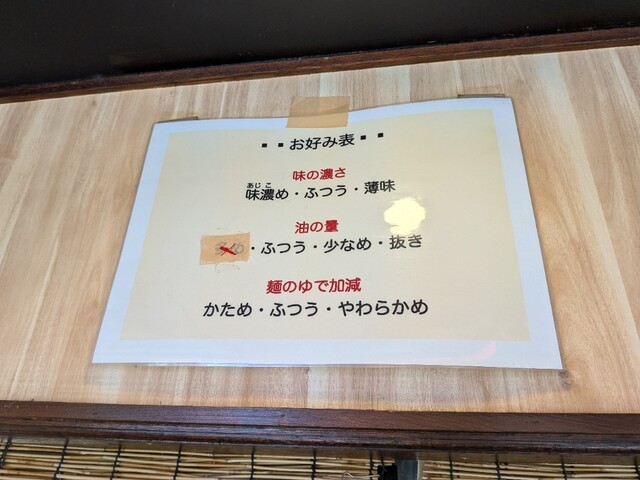 ・・お好み表・・
味の濃さ
あじ こ
味濃め・ふつう・薄味
油の量
・ふつう・少なめ・抜き
麺のゆで加減
かため・ふつう・やわらかめ